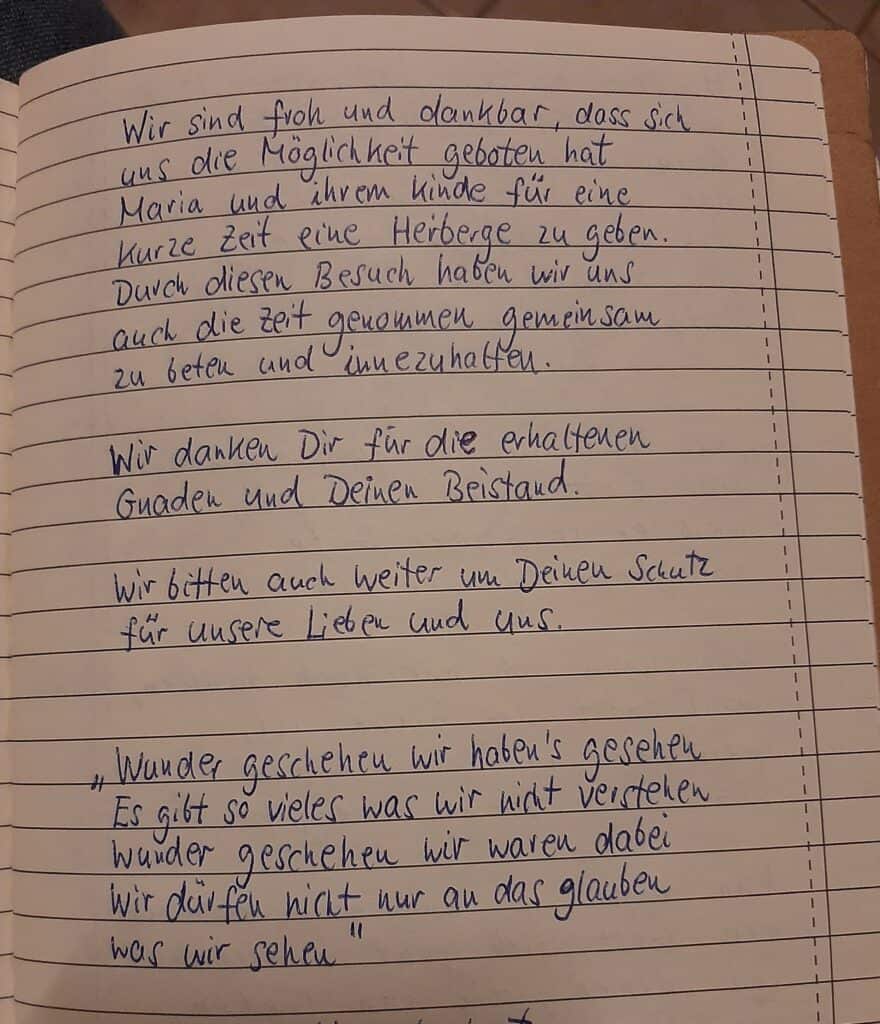 Wir sind froh und dankbar, dass sich
uns die Möglichkeit geboten hat
Maria und ihrem Kinde für eine
kurze Zeit eine Herberge zu geben.
Durch diesen Besuch haben wir uns
auch die Zeit genommen gemeinsam
zu beten und innezuhalten.
Wir danken Dir für die erhaltenen
Gnaden und Deinen Beistand.
Wir bitten auch weiter um Deinen Schutz
für unsere Lieben und uns.
„Wunder geschehen wir haben's gesehen
Es gibt so vieles was wir nicht verstehen
Wunder geschehen wir waren dabei
Wir dürfen nicht nur an das glauben
was wir sehen"